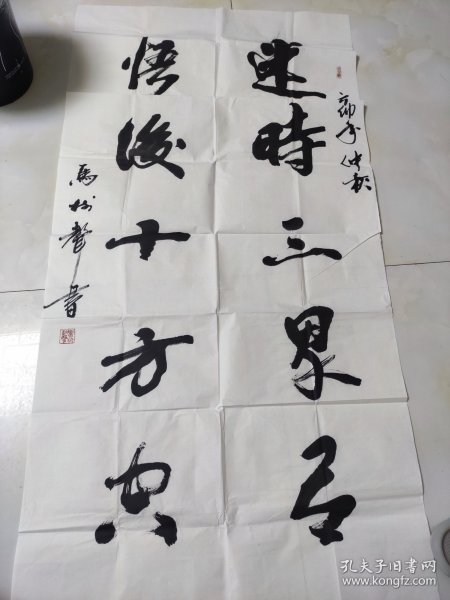 迷時三界有
悟後十方空
馬 書
孔夫子旧书网
www.kongfz.com